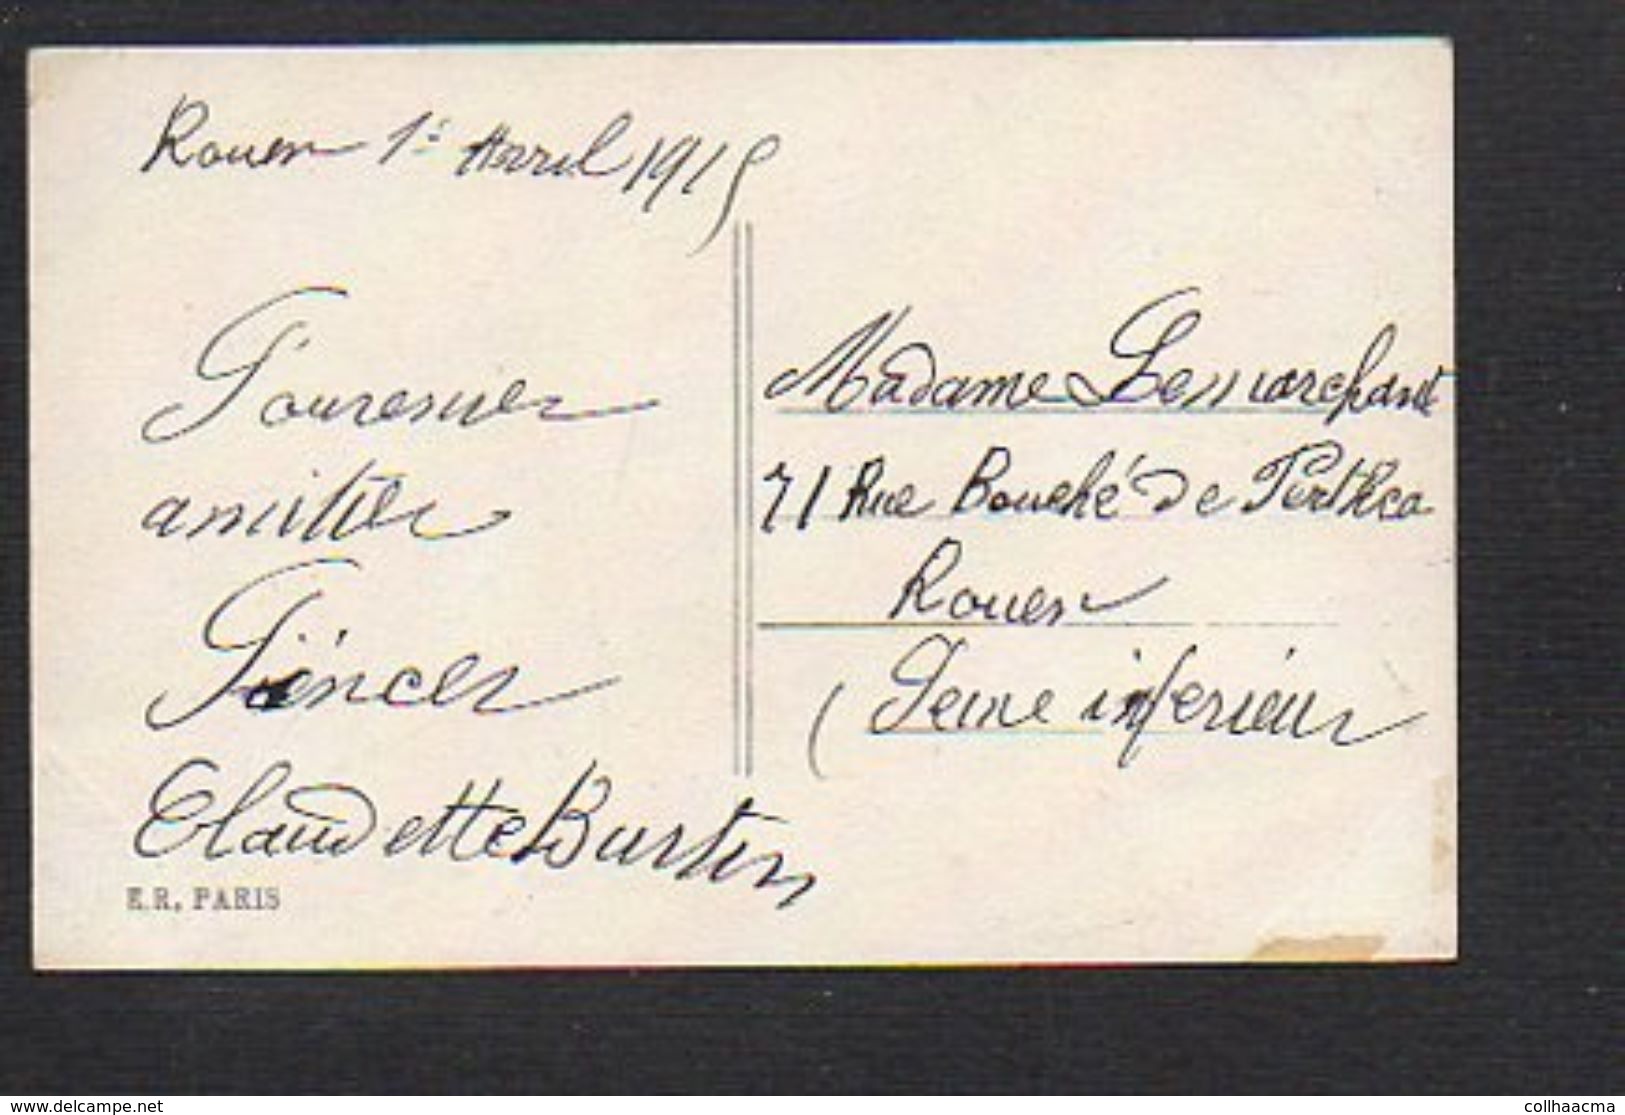 Rouen 1er Avril 1915
Souvenir
amitier
Sincer
Claudette Burtin
E.R. PARIS
Madame Lemarchant
71 Rue Bouché de Perthes
Rouen
(Seine inferieur
www.delcampe.net
collhaacma